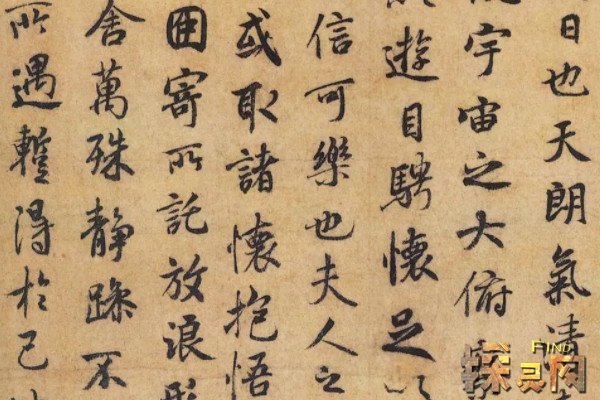 日也天朗氣清
宇宙之大俯
遊目騁懷足以
信可樂也夫人之
或取諸懷抱悟
因寄所託放浪形
舍萬殊靜躁不
所遇蹔得於己
FIND
探灵网